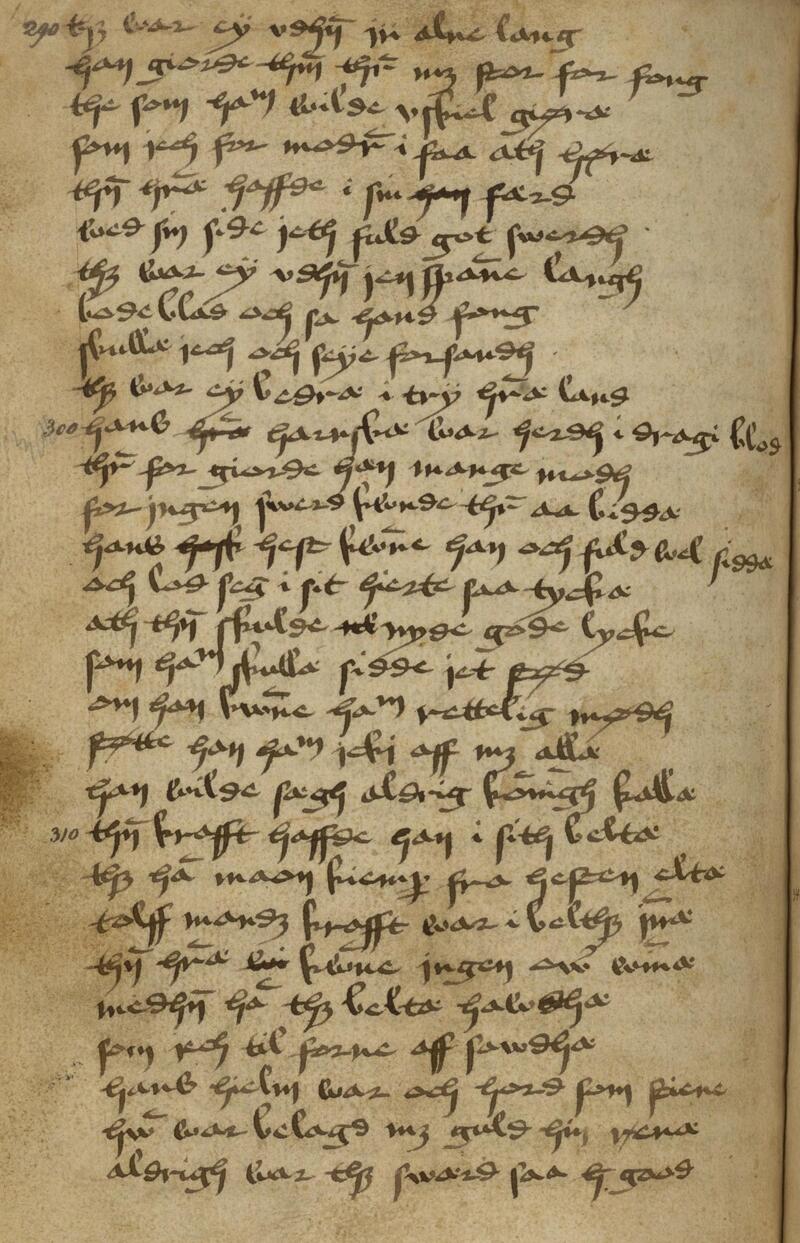 290 thꝫ war ey vdhn̄ jn alne lang
han giorde thm̄ thr̄ mꝫ stor for fong
the som haᵐ wilde vskiel gøræ
som jech for modr̄ i faa ath høræ
thn̄ hr̄æ haffde i sin han færd
wed sin side jeth fuld got swerdh
thꝫ war ey vdhn̄ jen span̄e langh
bode blad och sa hand fong
skullæ jech och seye forsandh
thꝫ war ey bedræ i try hr̄æ land
300 hans hr̄æ harnskæ war herdh i dragi blod
thr̄ for giorde han mange modh
for jngen swerd kwnde thr̄ aa bidda
hans hesk hest kwn̄e han och fuld wel sidda
och lod seg i sit hierte saa tycka
ath thn̄ skulde nyde gode lycke
som haᵐ skulla sidde jet stød
om han kwn̄e haᵐ rettelig mødh
støtte han haᵐ icki aff mꝫ alla
han wilde sægh aldrig kōnīgh kalla
310 thn̄ krafft haffde han i sith belta
thꝫ hā maon kiemꝑ fra hesten elta
tolff mandꝫ krafft war i belthꝫ jn̄æ
thn̄ hr̄æ kwn̄e jngen ow̄ win̄æ
medhn̄ hā thꝫ belta hawdha
som jech til forne aff sawdha
hans hielm war och hord som stiene
hw̄ war belagd mꝫ guld hin rena
aldrigh war thꝫ sward saa h good